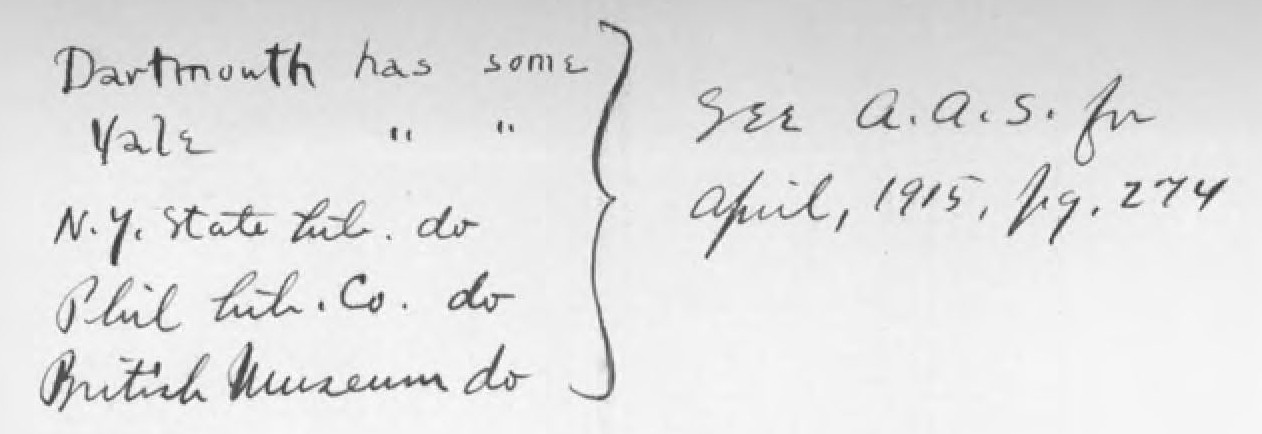 Dartmouth has some
Yale " "
N.Y. State Lib. do
Phil Lib. Co. do
British Museum do
See A.A.S. for
April, 1915, pg. 274